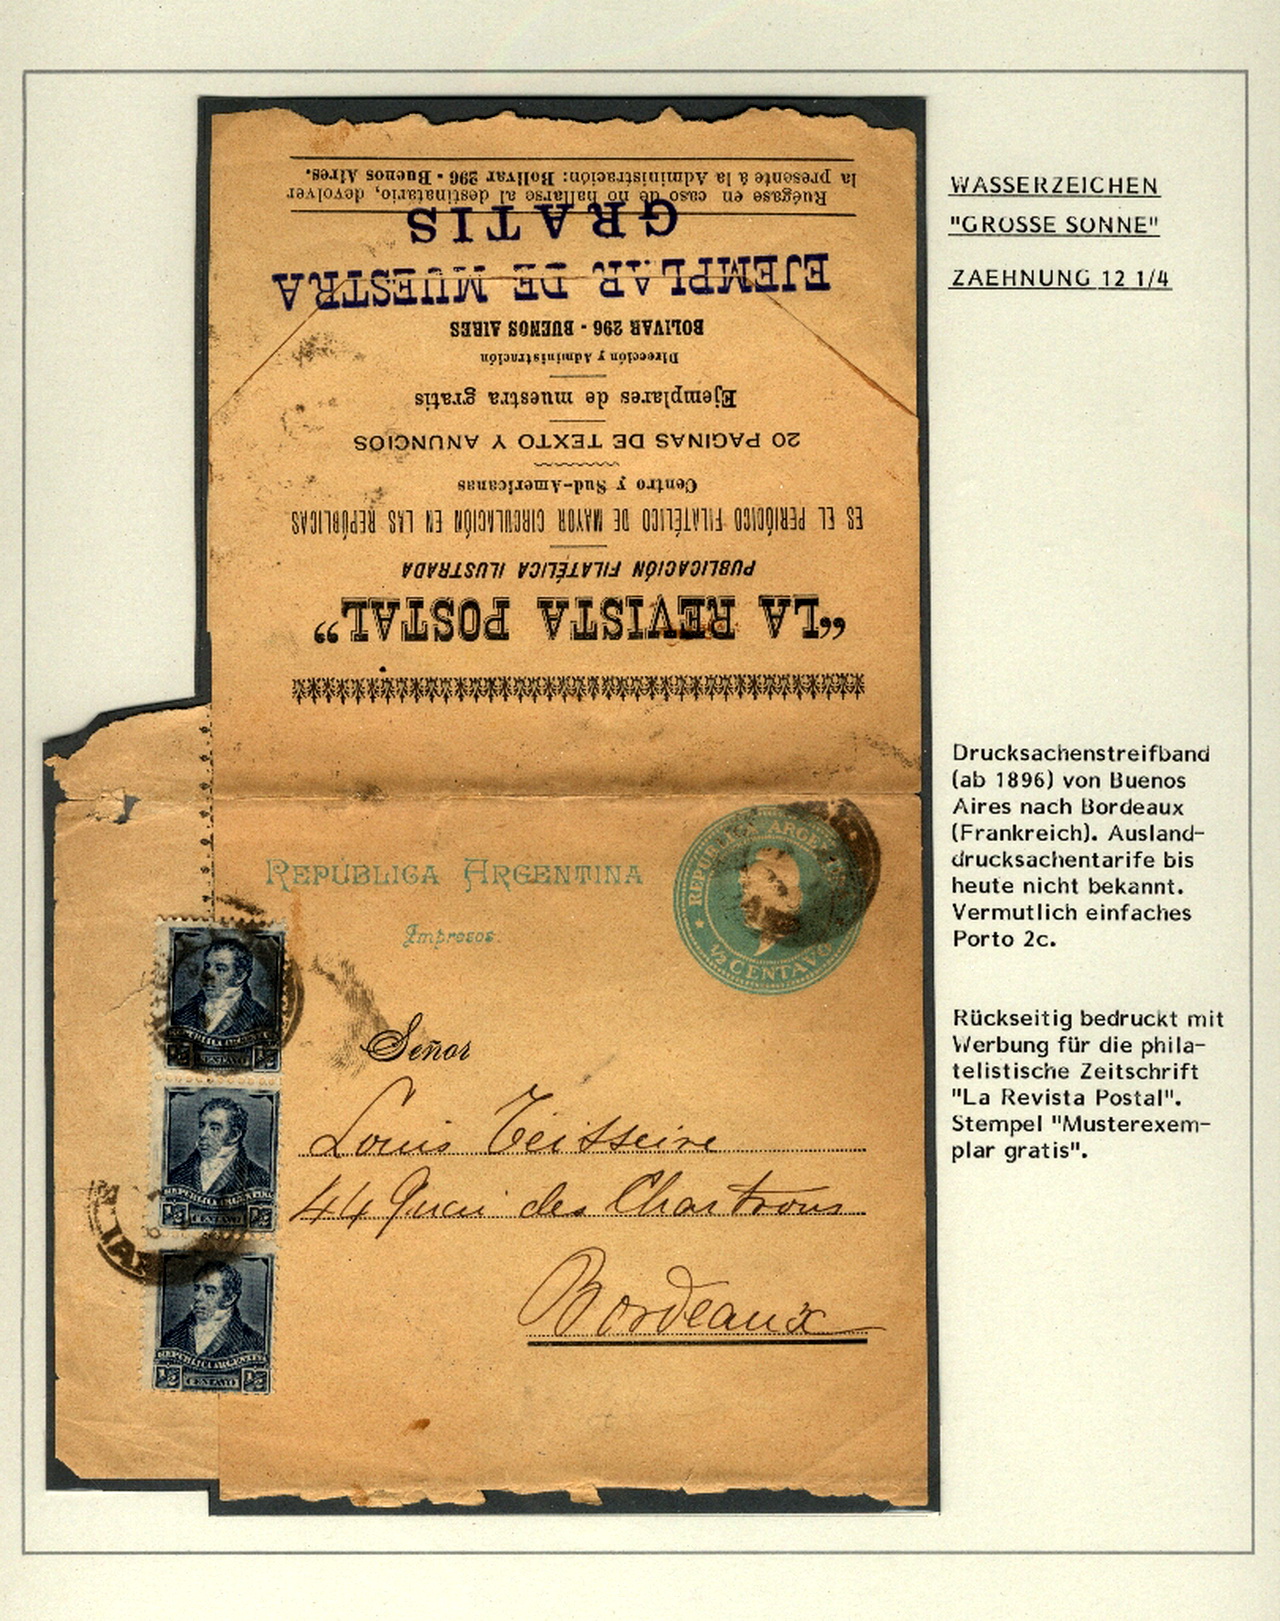 WASSERZEICHEN
"GROSSE SONNE"
ZAEHNUNG 12 1/4
Drucksachenstreifband
(ab 1896) von Buenos
Aires nach Bordeaux
(Frankreich). Ausland-
drucksachentarife bis
heute nicht bekannt.
Vermutlich einfaches
Porto 2c.
Rückseitig bedruckt mit
Werbung für die phila-
telistische Zeitschrift
"La Revista Postal".
Stempel "Musterexem-
plar gratis".
„LA REVISTA POSTAL“
PUBLICACIÓN FILATÉLICA ILUSTRADA
ES EL PERIÓDICO FILATÉLICO DE MAYOR CIRCULACIÓN EN LAS REPÚBLICAS
Centro y Sud-Americanas
20 PAGINAS DE TEXTO Y ANUNCIOS
Ejemplares de muestra gratis
Dirección y Administración
BOLIVAR 296 - BUENOS AIRES
EJEMPLAR DE MUESTRA
GRATIS
Ruégase en caso de no hallarse al destinatario, devolver
la presente á la Administración: Bolivar 296 - Buenos Aires.
REPÚBLICA ARGENTINA
Impresos.
REPUBLICA ARGENTINA
½ CENTAVO
Señor
Louis Teisseire
44 Quai des Chartrons
Bordeaux
REPUBLICA ARGENTINA
½ CENTAVO ½
REPUBLICA ARGENTINA
½ CENTAVO ½
REPUBLICA ARGENTINA
½ CENTAVO ½